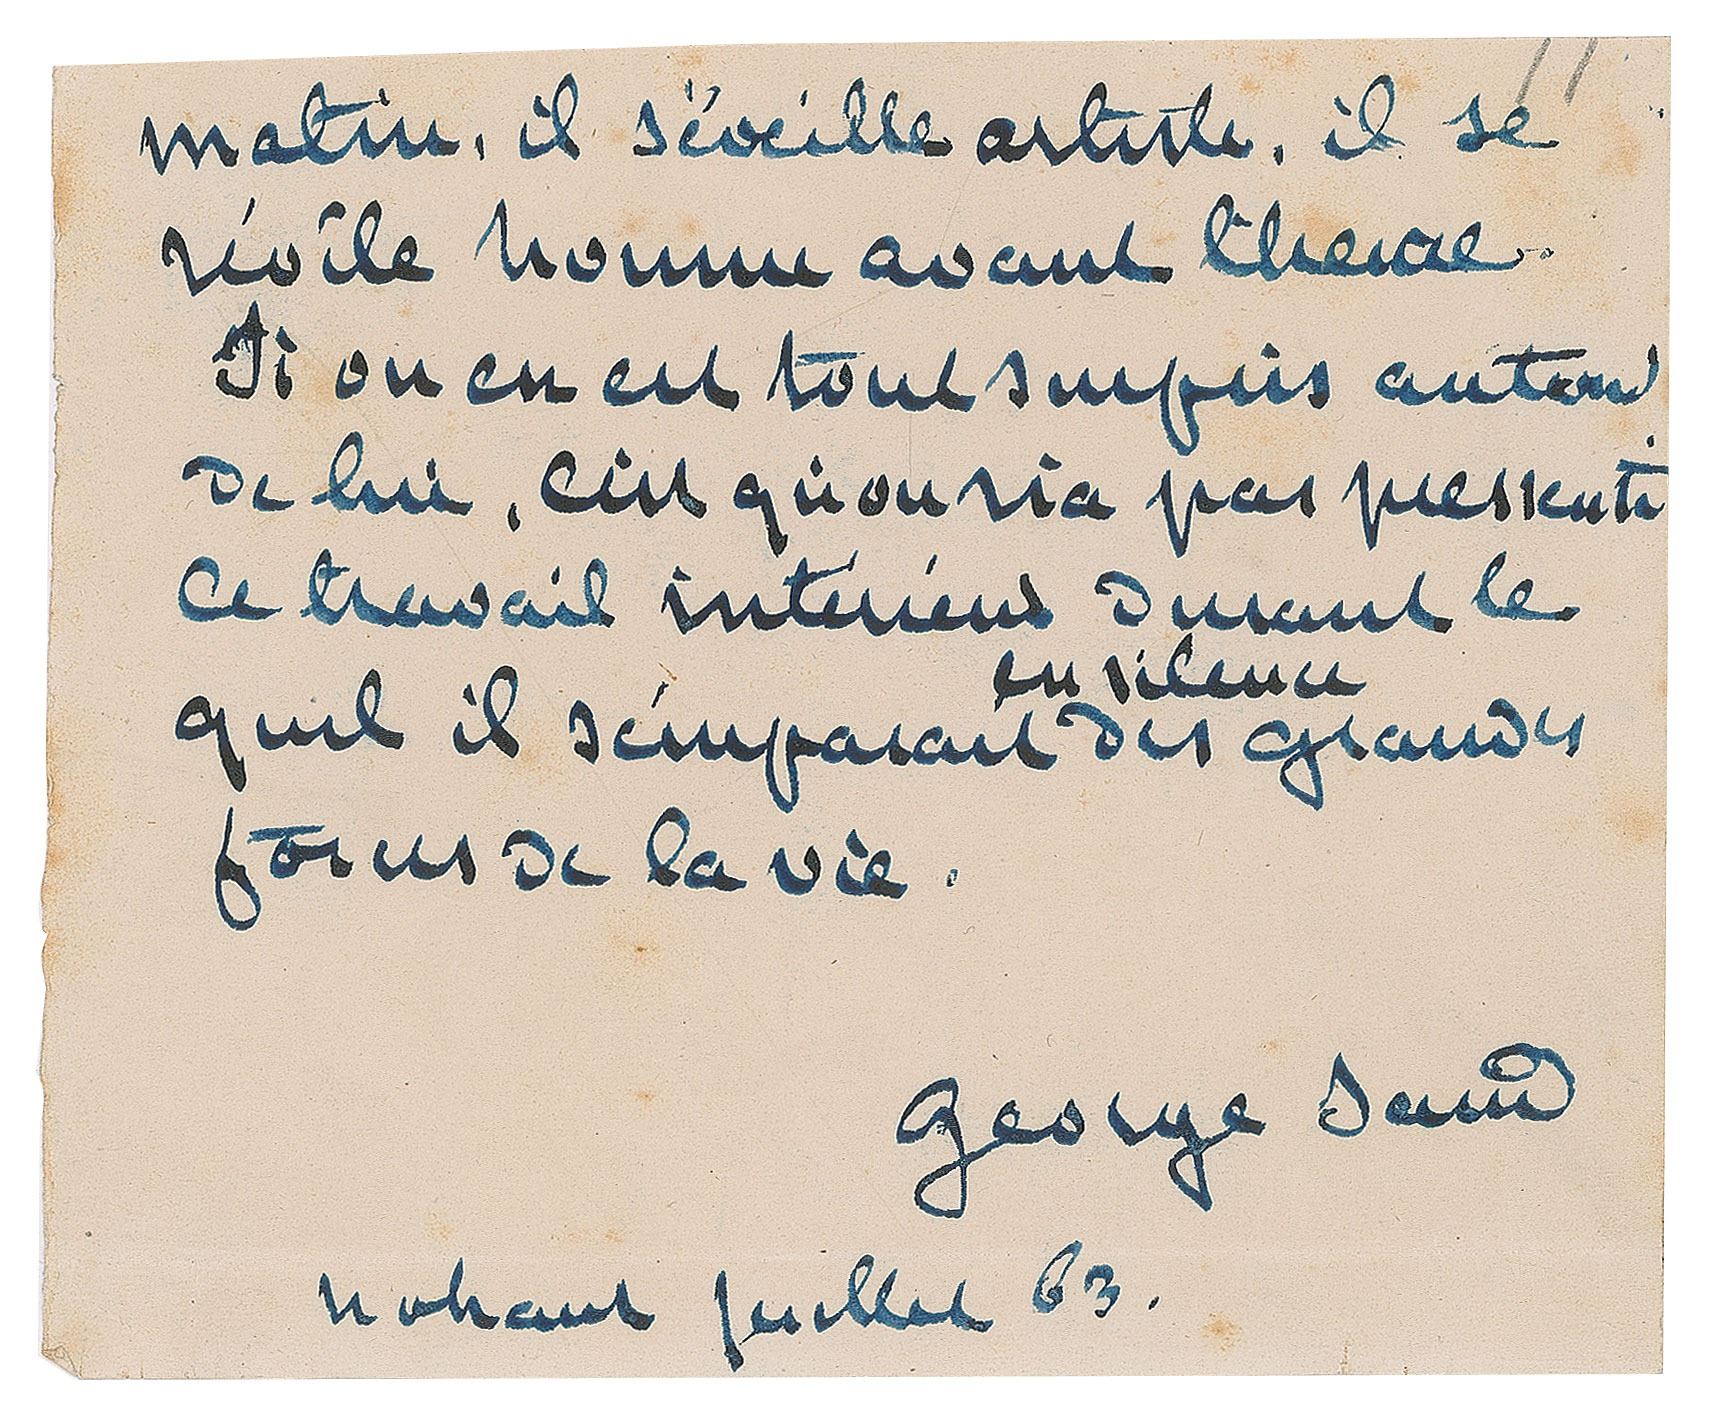 11
matin, il s'éveille artiste, il se
révèle homme avant l'heure.
Si on en est tout surpris autour
de lui, c'est qu'on n'a pas pressenti
ce travail intérieur durant le
en silence
quel il s'emparait des grandes
forces de la vie.
George Sand
Nohant juillet 63.